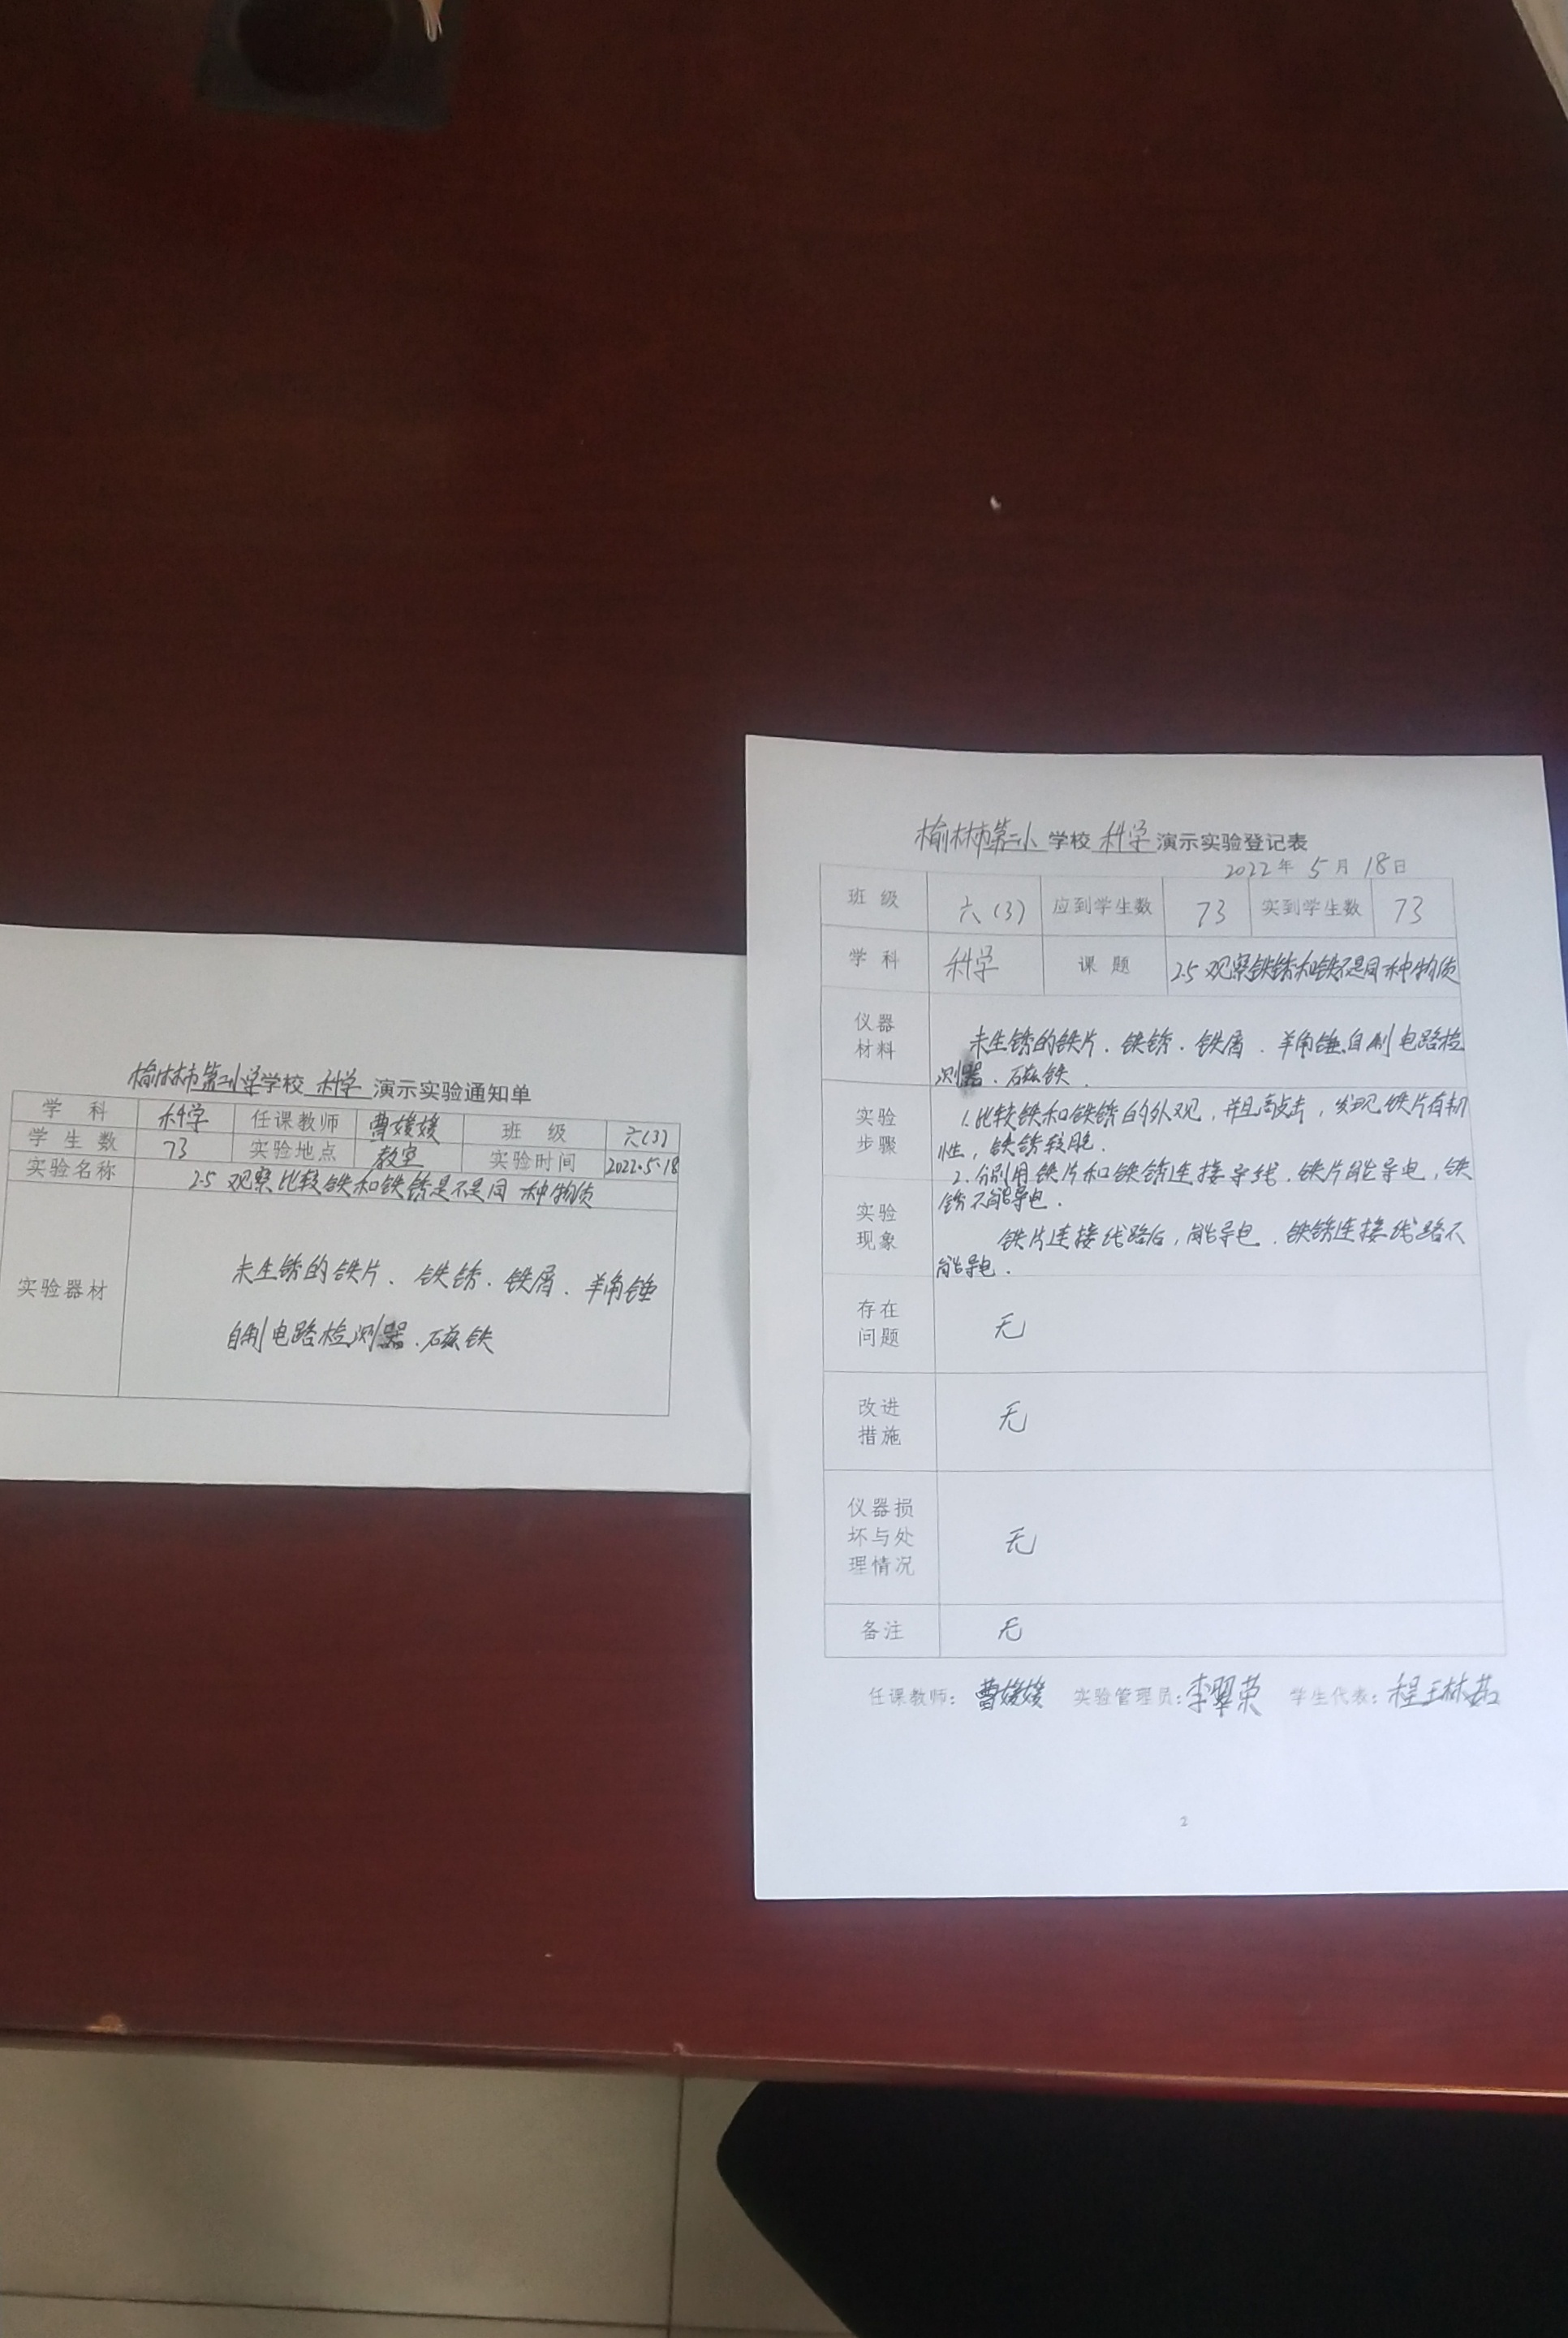 榆林市第二小学学校 科学 演示实验通知单
学科 科学 任课教师 曹媛媛 班级 六(3)
学生数 73 实验地点 教室 实验时间 2022.5.18
实验名称 2.5 观察比较铁和铁锈是不是同一种物质
实验器材
未生锈的铁片、铁锈、铁屑、羊角锤
自制电路检测器、磁铁
榆林市第二小 学校 科学 演示实验登记表
2022年 5月 18日
班级 六(3) 应到学生数 73 实到学生数 73
学科 科学 课题 2.5 观察铁锈和铁不是同一种物质
仪器材料
未生锈的铁片、铁锈、铁屑、羊角锤、自制电路检
测器、磁铁.
实验步骤
1.比较铁和铁锈的外观,并且敲击,发现铁片有韧
性,铁锈较脆.
2.分别用铁片和铁锈连接导线.铁片能导电,铁
锈不能导电.
实验现象
铁片连接线路后,能导电.铁锈连接线路不
能导电.
存在问题 无
改进措施 无
仪器损坏与处理情况 无
备注 无
任课教师: 曹媛媛 实验管理员: 李翠荣 学生代表: 程
2